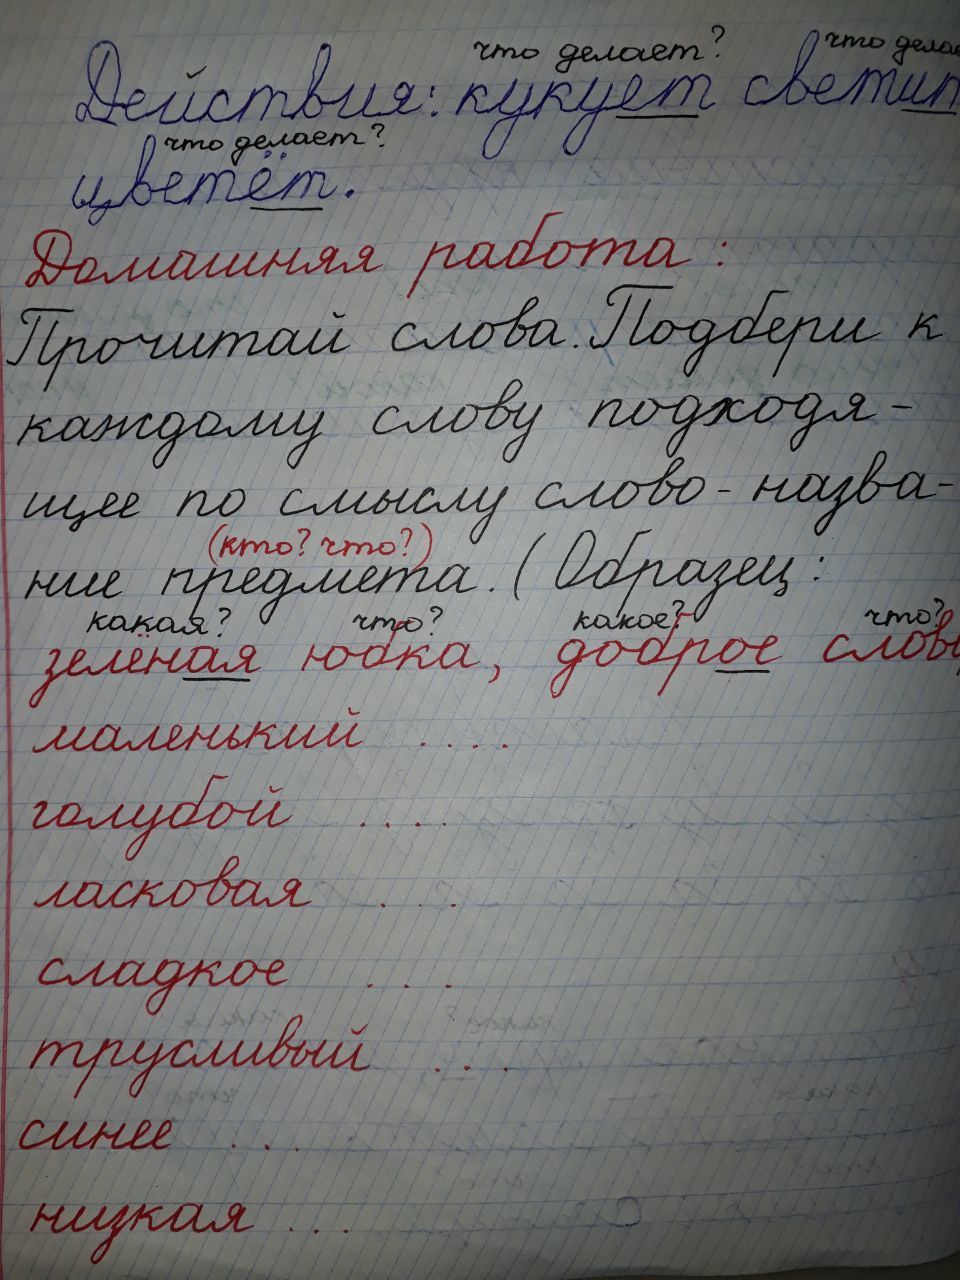 что делает? что делае
Действия: кукует светит
что делает?
цветёт.
Домашняя работа:
Прочитай слова. Подбери к
каждому слову подходя-
щее по смыслу слово-назва-
(кто? что?)
ние предмета. (Образец:
какая? что? какое? что?
зелёная юбка, доброе слово
маленький ....
голубой ....
ласковая ....
сладкое ...
трусливый ...
синее ...
низкая ...